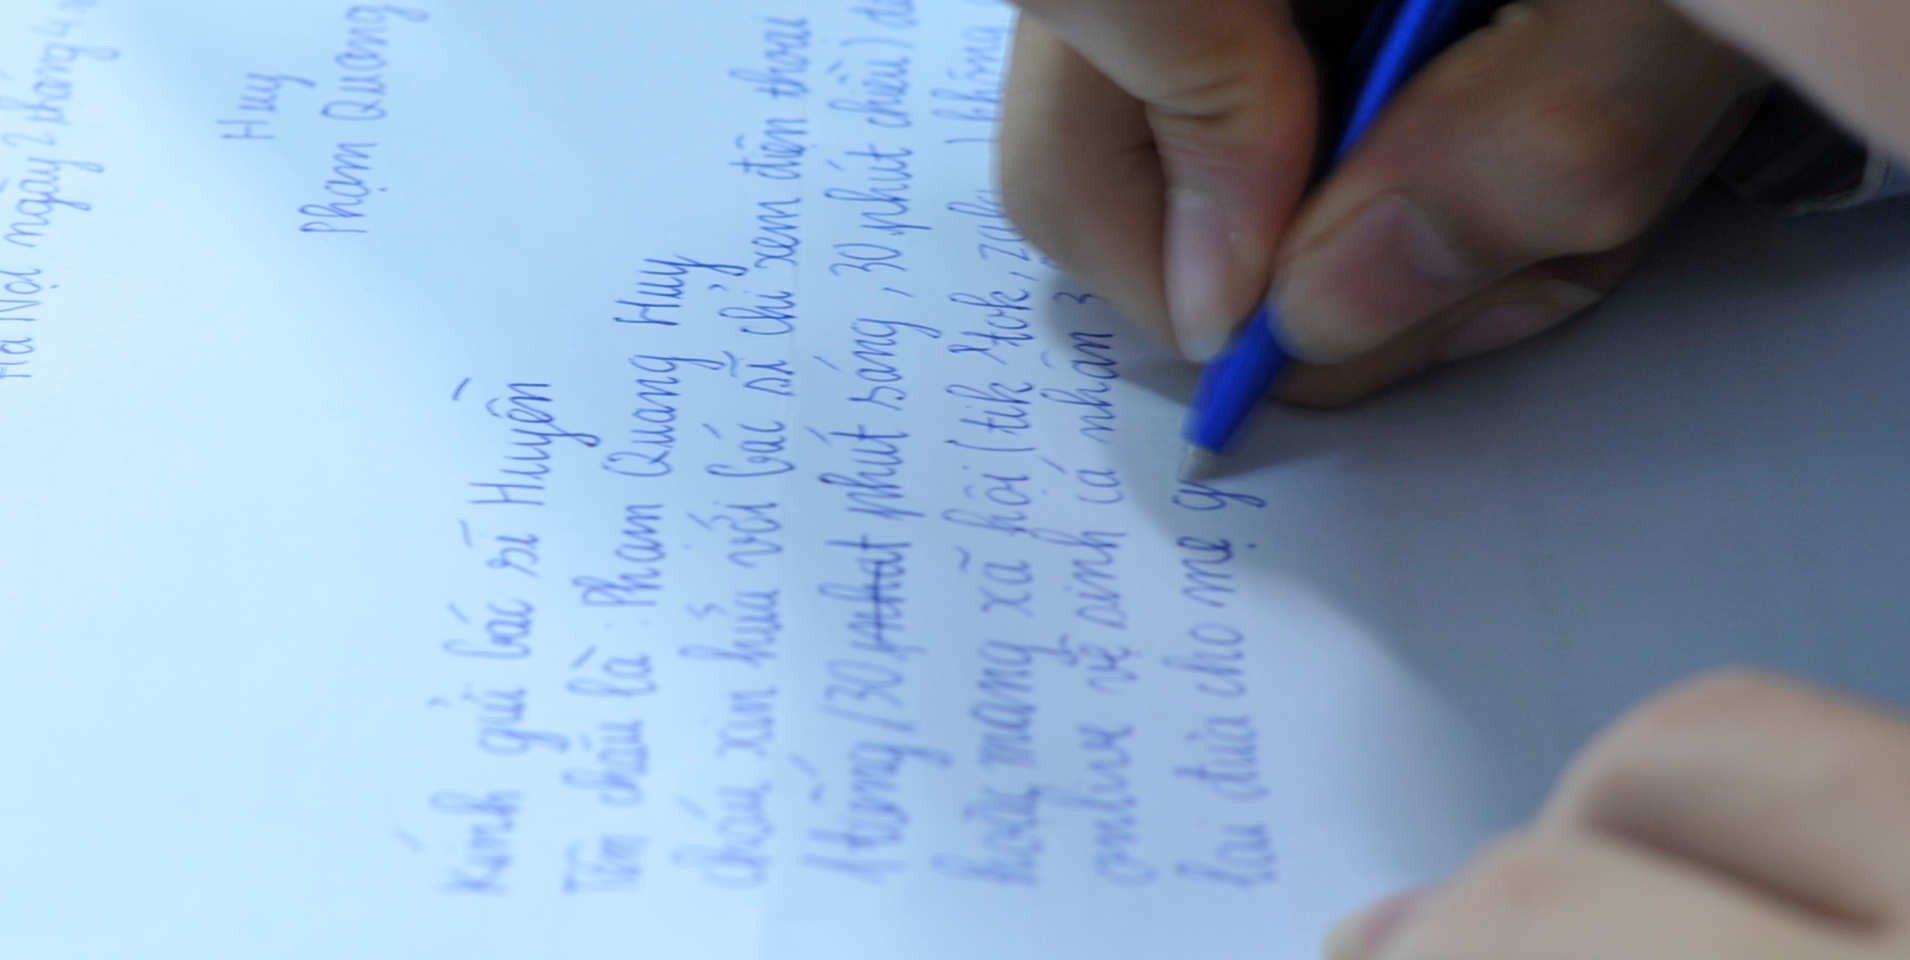 Hà Nội ngày 2 tháng 4
Huy
Phạm Quang
Kính gửi bác sĩ Huyền
Tên cháu là: Phạm Quang Huy
cháu xin hứa với bác sĩ chỉ xem điện thoại
1 tiếng (30 phút sáng, 30 phút chiều)
hoặc mạng xã hội (tik tok, zalo ) không
online về sinh cá nhân 3
lau đùa cho mẹ g